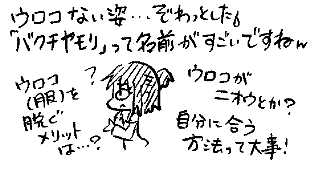 ウロコない姿…ぞわっとした💧
「バクチヤモリ」って名前がすごいですねw
ウロコ
(服)を
脱ぐ
メリット
は…?
?
ウロコが
ニオウとか?
自分に合う
方法って大事!